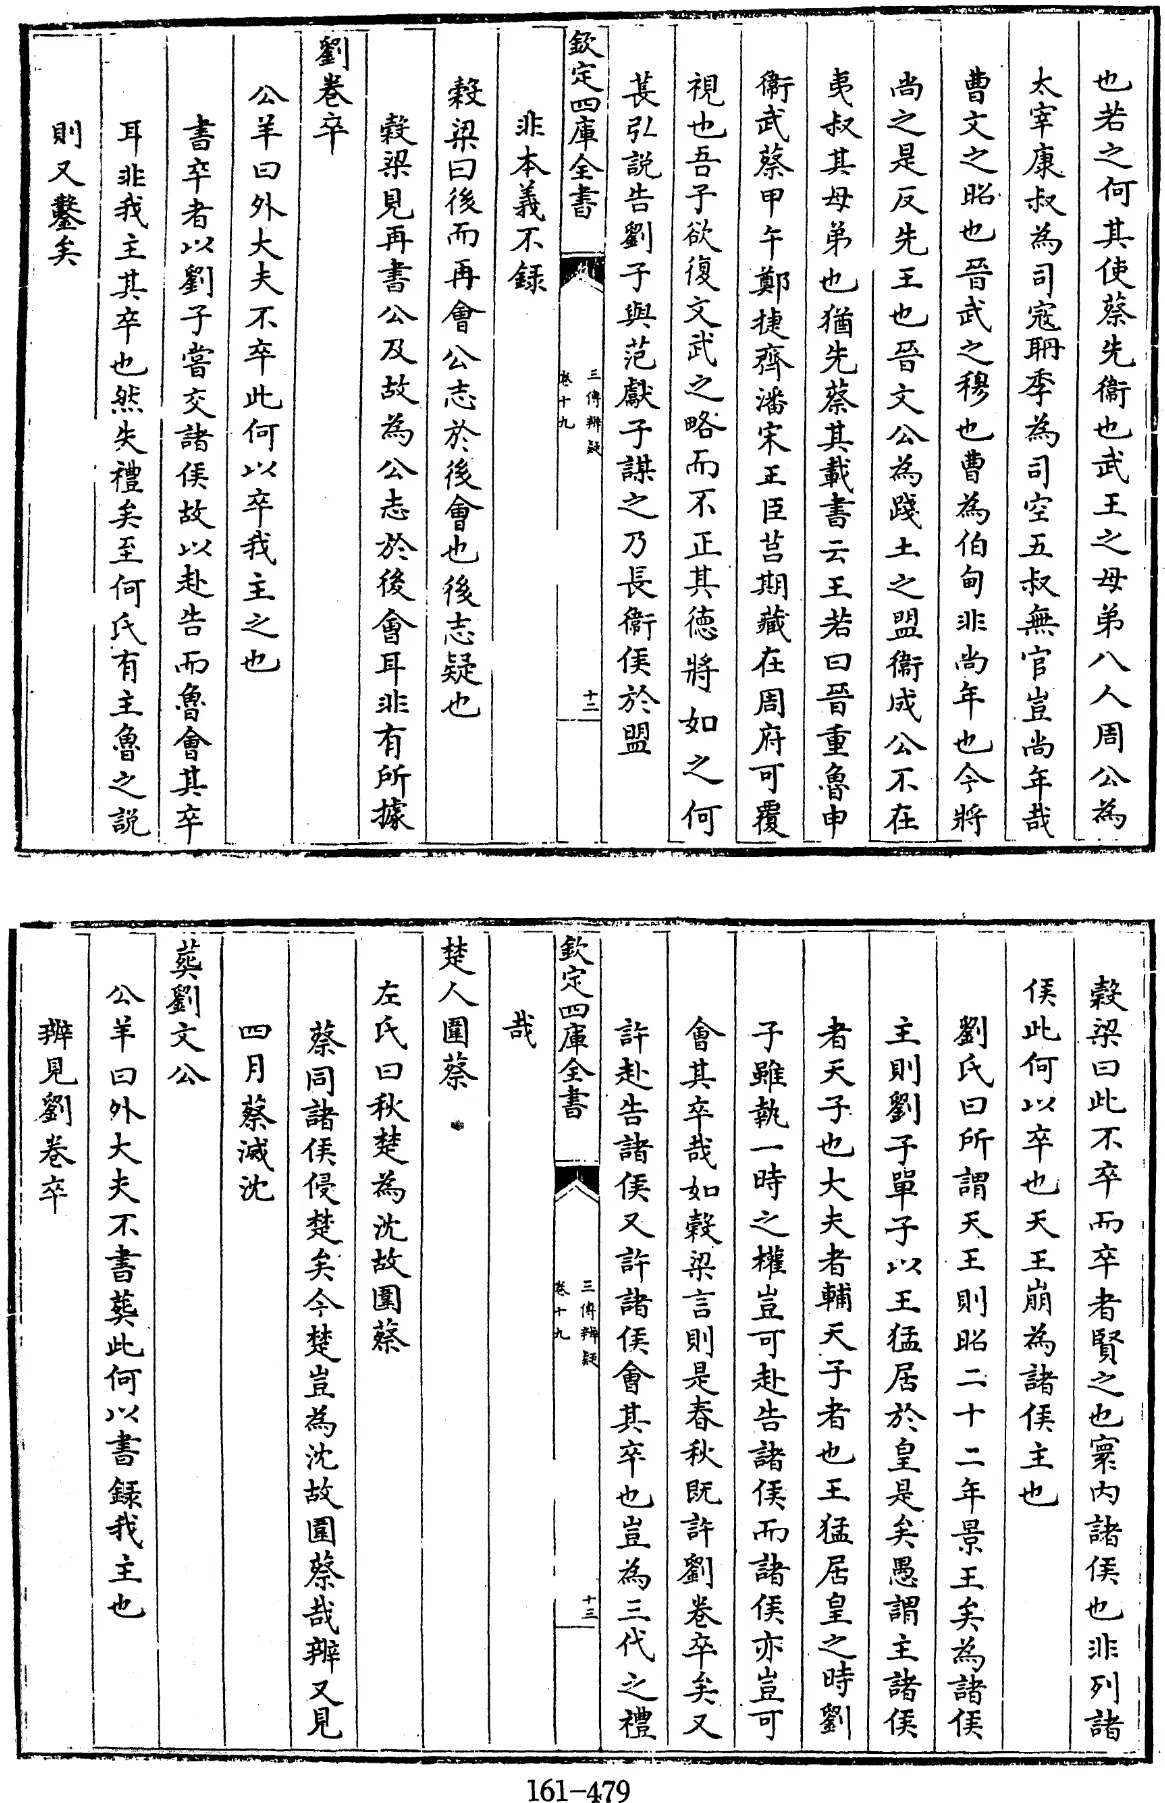 也若之何其使蔡先衛也武王之母弟八人周公為
太宰康叔為司寇聃季為司空五叔無官豈尚年哉
曹文之昭也晉武之穆也曹為伯甸非尚年也今將
尚之是反先王也晉文公為踐土之盟衛成公不在
夷叔其母弟也猶先蔡其載書云王若曰晉重魯申
衛武蔡甲午鄭捷齊潘宋王臣莒期藏在周府可覆
視也吾子欲復文武之略而不正其德將如之何
萇弘說告劉子與范獻子謀之乃長衛侯於盟
欽定四庫全書
三傳辨疑
卷十九
十二
非本義不録
穀梁曰後而再會公志於後會也後志疑也
穀梁見再書公及故為公志於後會耳非有所據
劉卷卒
公羊曰外大夫不卒此何以卒我主之也
書卒者以劉子嘗交諸侯故以赴告而魯會其卒
耳非我主其卒也然失禮矣至何氏有主魯之説
則又鑿矣
穀梁曰此不卒而卒者賢之也寰内諸侯也非列諸
侯此何以卒也天王崩為諸侯主也
劉氏曰所謂天王則昭二十二年景王矣為諸侯
主則劉子單子以王猛居於皇是矣愚謂主諸侯
者天子也大夫者輔天子者也王猛居皇之時劉
子雖執一時之權豈可赴告諸侯而諸侯亦豈可
會其卒哉如穀梁言則是春秋既許劉卷卒矣又
許赴告諸侯又許諸侯會其卒也豈為三代之禮
欽定四庫全書
三傳辨疑
卷十九
十三
哉
楚人圍蔡
左氏曰秋楚為沈故圍蔡
蔡同諸侯侵楚矣今楚豈為沈故圍蔡哉辨又見
四月蔡滅沈
葬劉文公
公羊曰外大夫不書葬此何以書録我主也
辨見劉卷卒
161-479